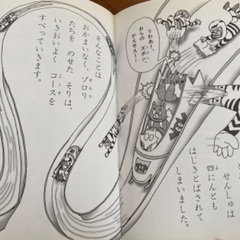 せんしゅは
四にんとも
はじきとばされて
しまいました。
おれの
ズボン、
そんなことは
おかまいなく、ゾロリ
たちを のせた そりは、
いきおいよく コースを
すべっていきます。